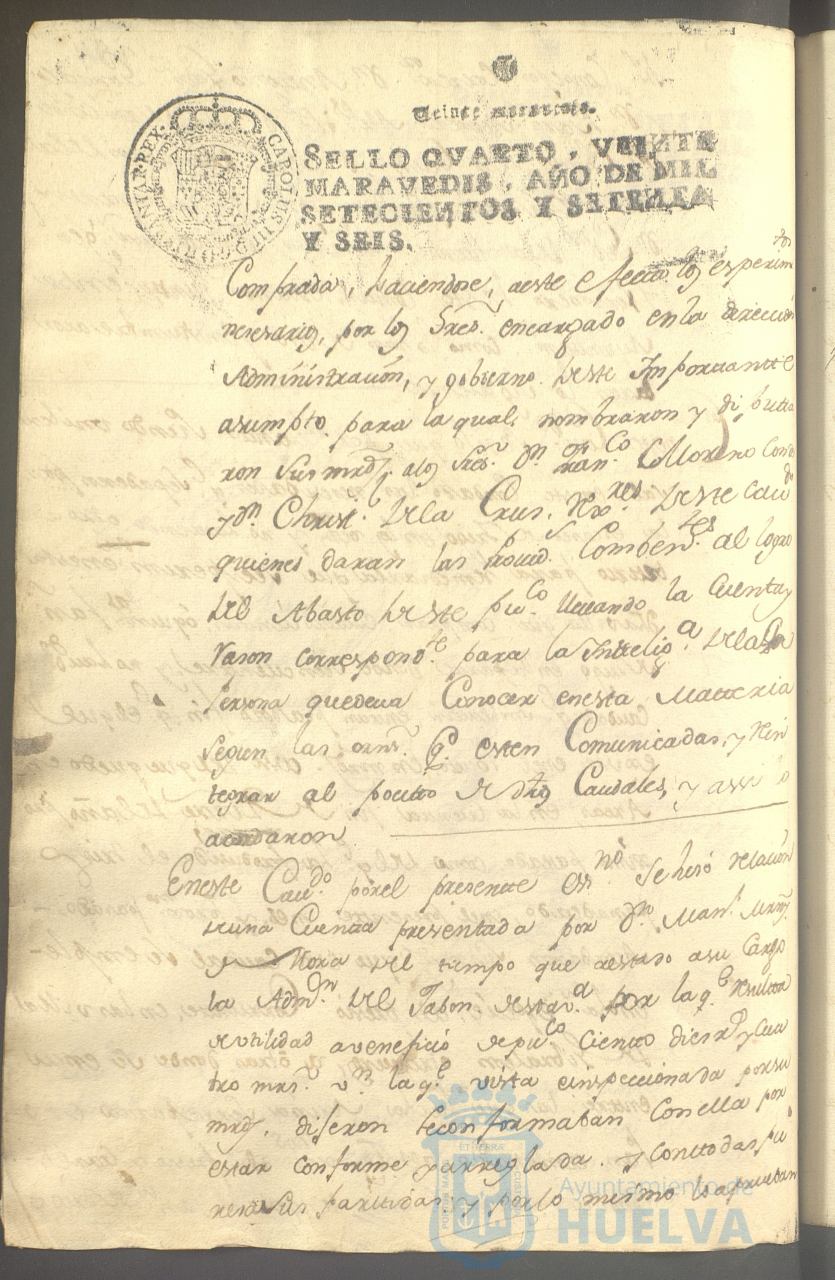 Veinte maravedis.
SELLO QVARTO, VEINTE
MARAVEDIS, AÑO DE MIL
SETECIENTOS Y SETENTA
Y SEIS.
CAROLUS III D G HISPANIAR REX
Comprada, haciendose, aeste efecto los esperim.tos
nesesarios, por los Sres. encargado en la direccion
Administracion, y gobierno deste Importantte
asumpto. para la qual, nombraron y diputa
ron sus mrds. a los Sres. Dn. Fran.co Moreno Conde
y Dn. Christ. de la Crus, Rex.res deste Cavdo
quienes daran las provid. Comben.tes al logro
del Abasto deste pu.co llevando la Cuenta y
rason correspond.te para la Intelig.a dela
Persona quedeva Conocer enesta Matteria
segun las orns. q.e esten Comunicadas, y Rein
tegrar al pocitto de dhos Caudales, y assi lo
acordaron
Eneste Cavdo. porel presentte essno. se hiso relacion
deuna Cuenta presentada por Dn. Man.l
Mora del tiempo que aestado asu Cargo
la Admon. del Jabon destav.a por la q.e resulta
deutilidad avenefició depu.co Ciento dies r.s y Cua
tro mrs. vn. la q.e vista einspeccionada porsu
mrds. dijeron seconformaban Conella por
estar conforme yarreglada. y conttodas pu
ras sus parttidas y porlo mismo la aprueban
Ayuntamiento de
HUELVA